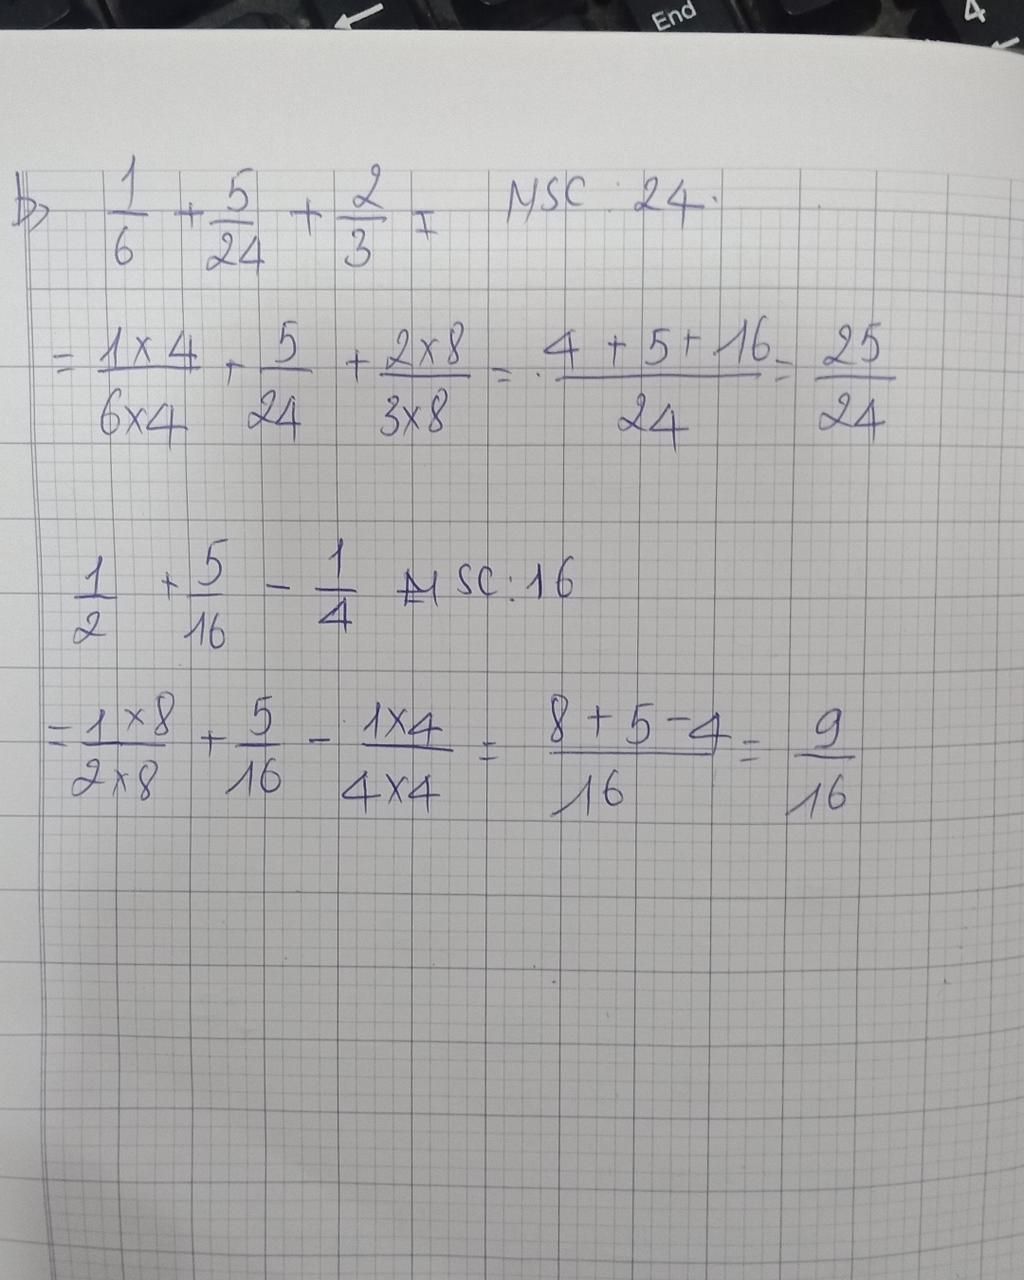 End 4
b) 1/6 + 5/24 + 2/3 = MSC : 24.
= 1×4/6×4 + 5/24 + 2×8/3×8 = 4 + 5 + 16/24 = 25/24
1/2 + 5/16 - 1/4 MSC : 16
= 1×8/2×8 + 5/16 - 1×4/4×4 = 8 + 5 - 4/16 = 9/16